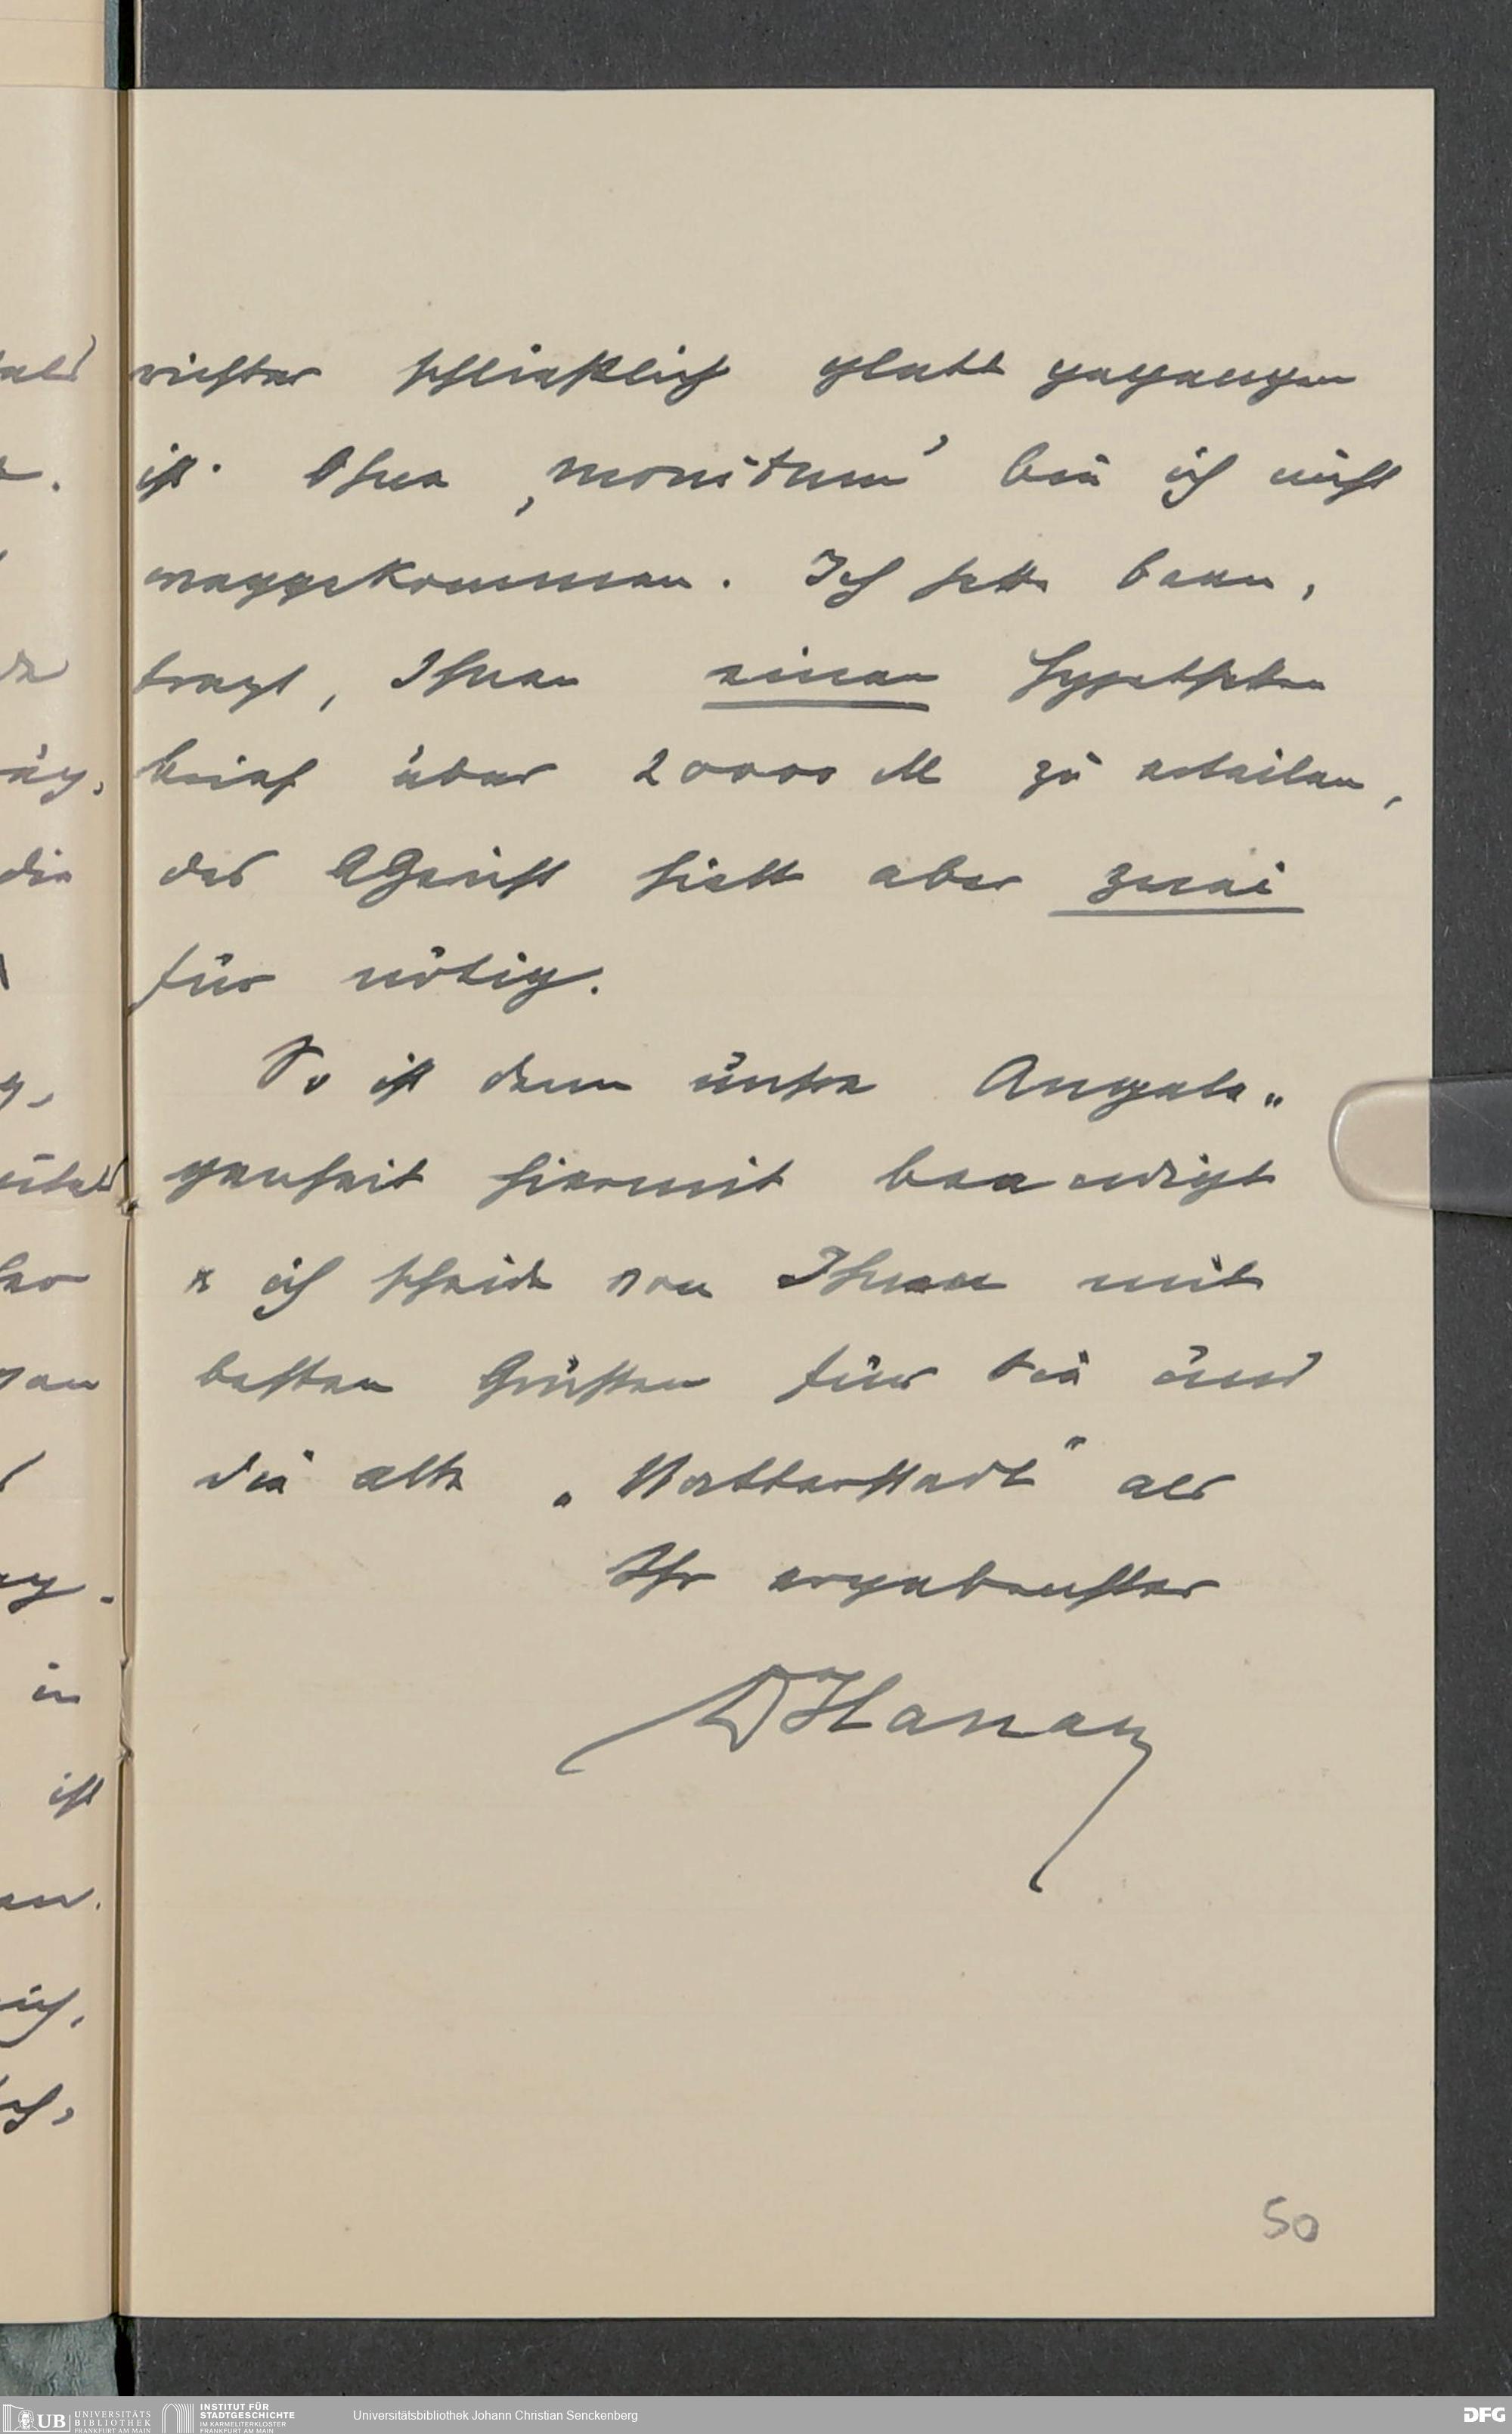 richter schließlich glatt gegangen
ist. Ohne ‚monitum' bin ich nicht
weggekommen. Ich hatte bean,
tragt, Ihnen einen Hypotheken
brief über 20000 M zu erteilen,
das AGericht hielt aber zwei
für nötig.
So ist denn unsre Angele„
genheit hiermit beendigt
& ich scheide von Ihnen mit
besten Grüssen für Sie und
die alte „Vaterstadt" als
Ihr ergebenster
50
UB UNIVERSITÄTS
BIBLIOTHEK
FRANKFURT AM MAIN
INSTITUT FÜR
STADTGESCHICHTE
IM KARMELITERKLOSTER
FRANKFURT AM MAIN
Universitätsbibliothek Johann Christian Senckenberg
DFG